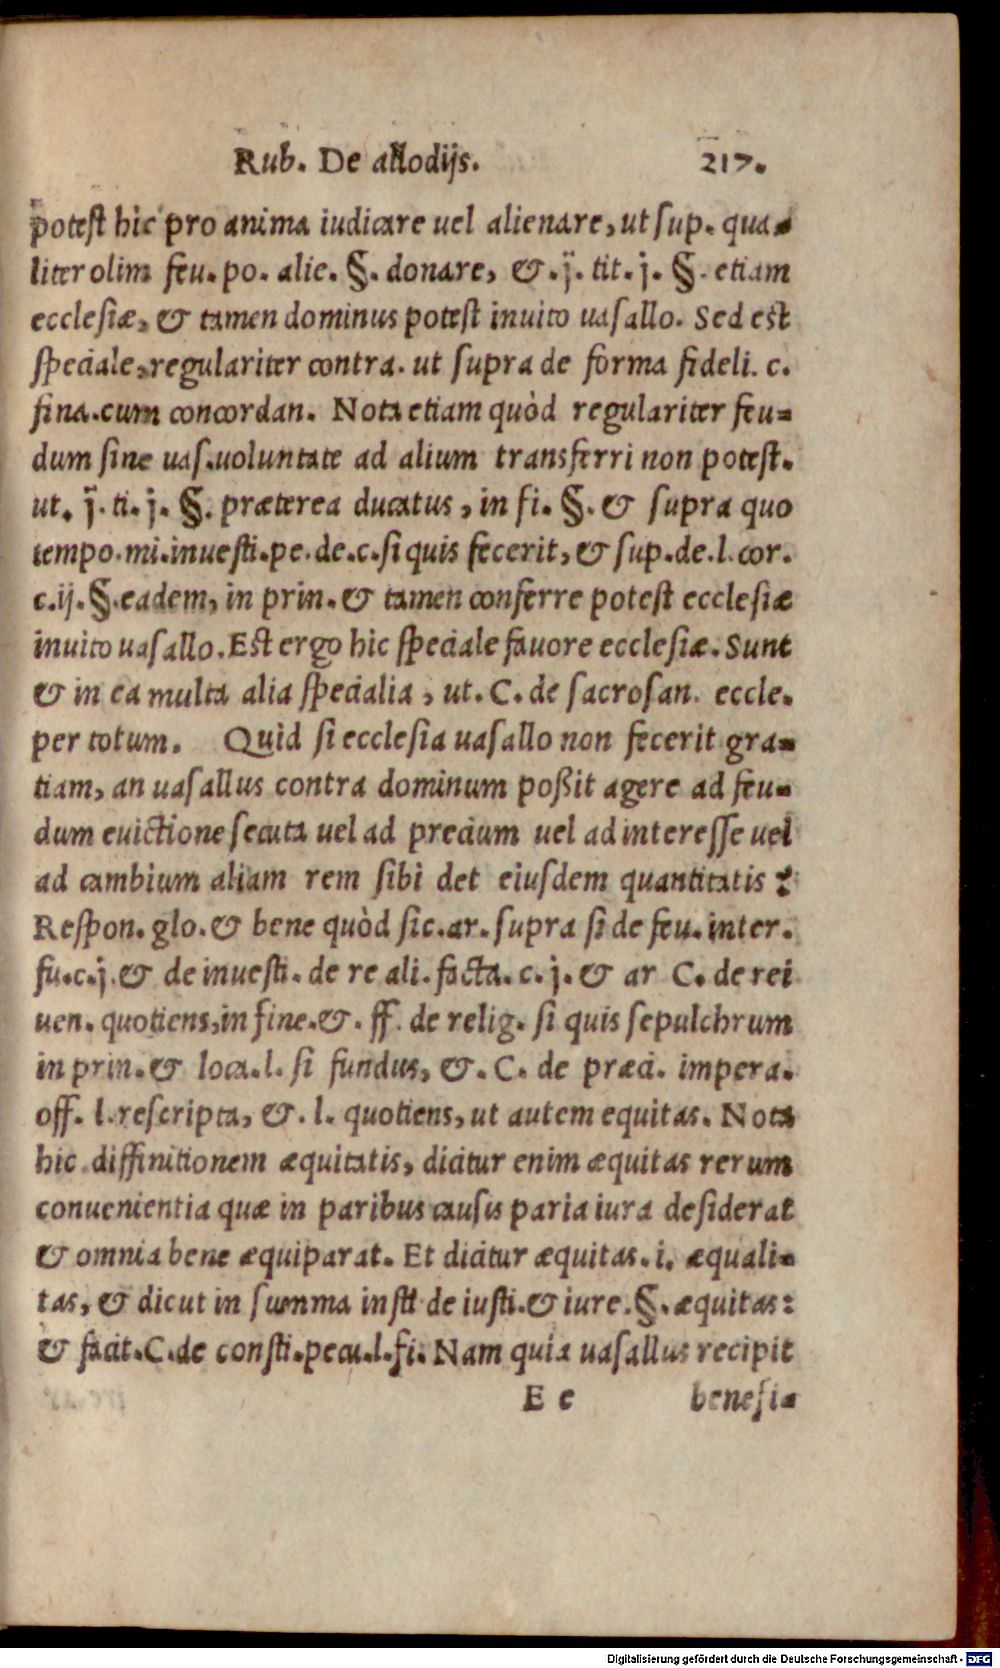 Rub. De allodijs. 217.
potest hic pro anima iudicare uel alienare, ut sup. qua-
liter olim feu. po. alie. §. donare, &. j̈. tit. j. §. etiam
ecclesiæ, & tamen dominus potest inuito uasallo. Sed est
speciale, regulariter contra. ut supra de forma fideli. c.
fina. cum concordan. Nota etiam quòd regulariter feu-
dum sine uas. uoluntate ad alium transferri non potest.
ut. j̈. ti. j. §. præterea ducatus, in fi. §. & supra quo
tempo. mi. inuesti. pe. de. c. si quis fecerit, & sup. de. l. cor.
c. ij. §. eadem, in prin. & tamen conferre potest ecclesiæ
inuito uasallo. Est ergo hic speciale fauore ecclesiæ. Sunt
& in ea multa alia specialia, ut. C. de sacrosan. eccle.
per totum. Quid si ecclesia uasallo non fecerit gra-
tiam, an uasallus contra dominum poßit agere ad feu-
dum euictione secuta uel ad precium uel ad interesse uel
ad cambium aliam rem sibi det eiusdem quantitatis ?
Respon. glo. & bene quòd sic. ar. supra si de feu. inter.
fu. c. j. & de inuesti. de re ali. facta. c. j. & ar C. de rei
uen. quotiens, in fine. &. ff. de relig. si quis sepulchrum
in prin. & loca. l. si fundus, &. C. de præci. impera.
off. l. rescripta, &. l. quotiens, ut autem equitas. Nota
hic diffinitionem æquitatis, dicitur enim æquitas rerum
conuenientia quæ in paribus causis paria iura desiderat
& omnia bene æquiparat. Et dicitur æquitas. i. æquali-
tas, & dicut in summa insti de iusti. & iure. §. æquitas:
& facit. C. de consti. pecu. l. fi. Nam quia uasallus recipit
E e benefi-
Digitalisierung gefördert durch die Deutsche Forschungsgemeinschaft - DFG